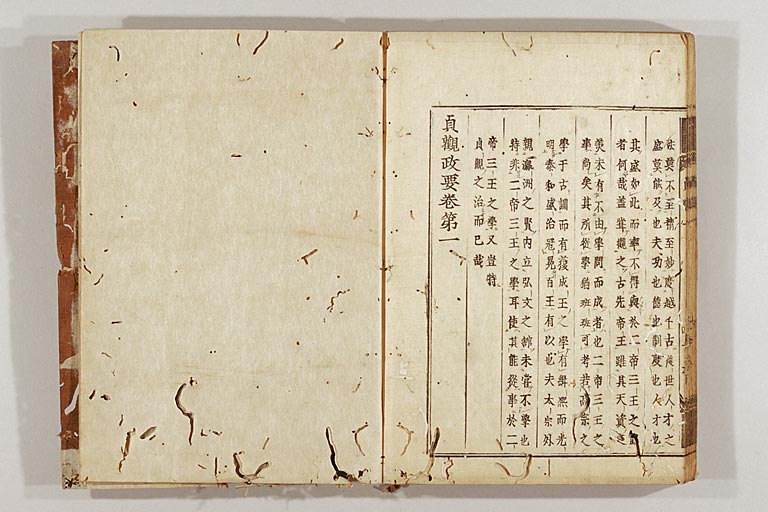 法莫不至精至妙度越千古後世人才之
盛莫能及也夫功也德也制度也人才也
其盛如此而率不得與於二帝三王之
者何哉蓋嘗觀之古先帝王雖其天資
美未有不由學問而成者也二帝三王之
事尚矣其所從學猶班班可考若高宗之
學于古訓而有獲成王之學有緝熙而光
明泰和盛治冠冕百王有以也夫太宗外
親瀛洲之賢內立弘文之館未嘗不學也
特非二帝三王之學耳使其能從事於二
帝三王之學又豈特
貞觀之治而已哉
貞觀政要卷第一